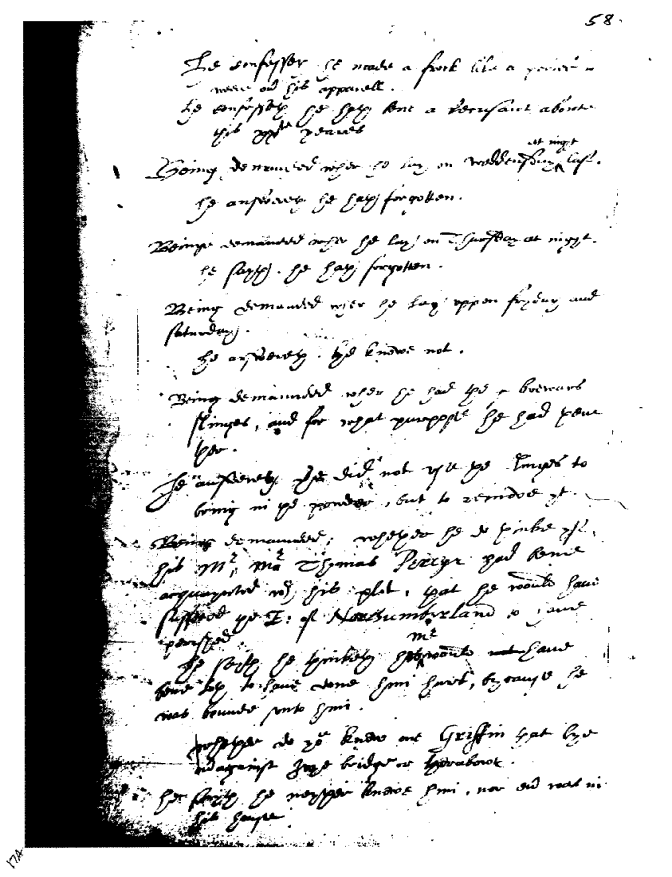 58.
He confesseth he made a frock like a porter to
weare on his apparell.
he confesseth he hath bene a recusant aboute
this yeares
at night
Being demaunded wher he lay on weddensday last.
he answereth he hath forgotten.
Beinge demaunded wher he lay on Thursday at night.
he sayth he hath forgotten.
Being demaunded wher he lay uppon fryday and
saturday.
he answereth he knowe not.
Being demaunded wher he had the brewars
slinges, and for what purpose he had
ther.
He answereth he did not use the slinges to
bring in the powder, but to remove yt.
Being demaunded, whether he do thinke yf
his Mr, Mr Thomas Percye had bene
acquaynted wth his plot, that he would have
suffered the E: of Northumberland to have
perished.
mr
he sayth he thinketh he would have
bene loth to have done him hurt, because he
was bounde unto him.
whether do yo know one Griffin that lye
against bridge or therabout.
he sayth he neyther knowe him, nor did eat in
his house.
17A